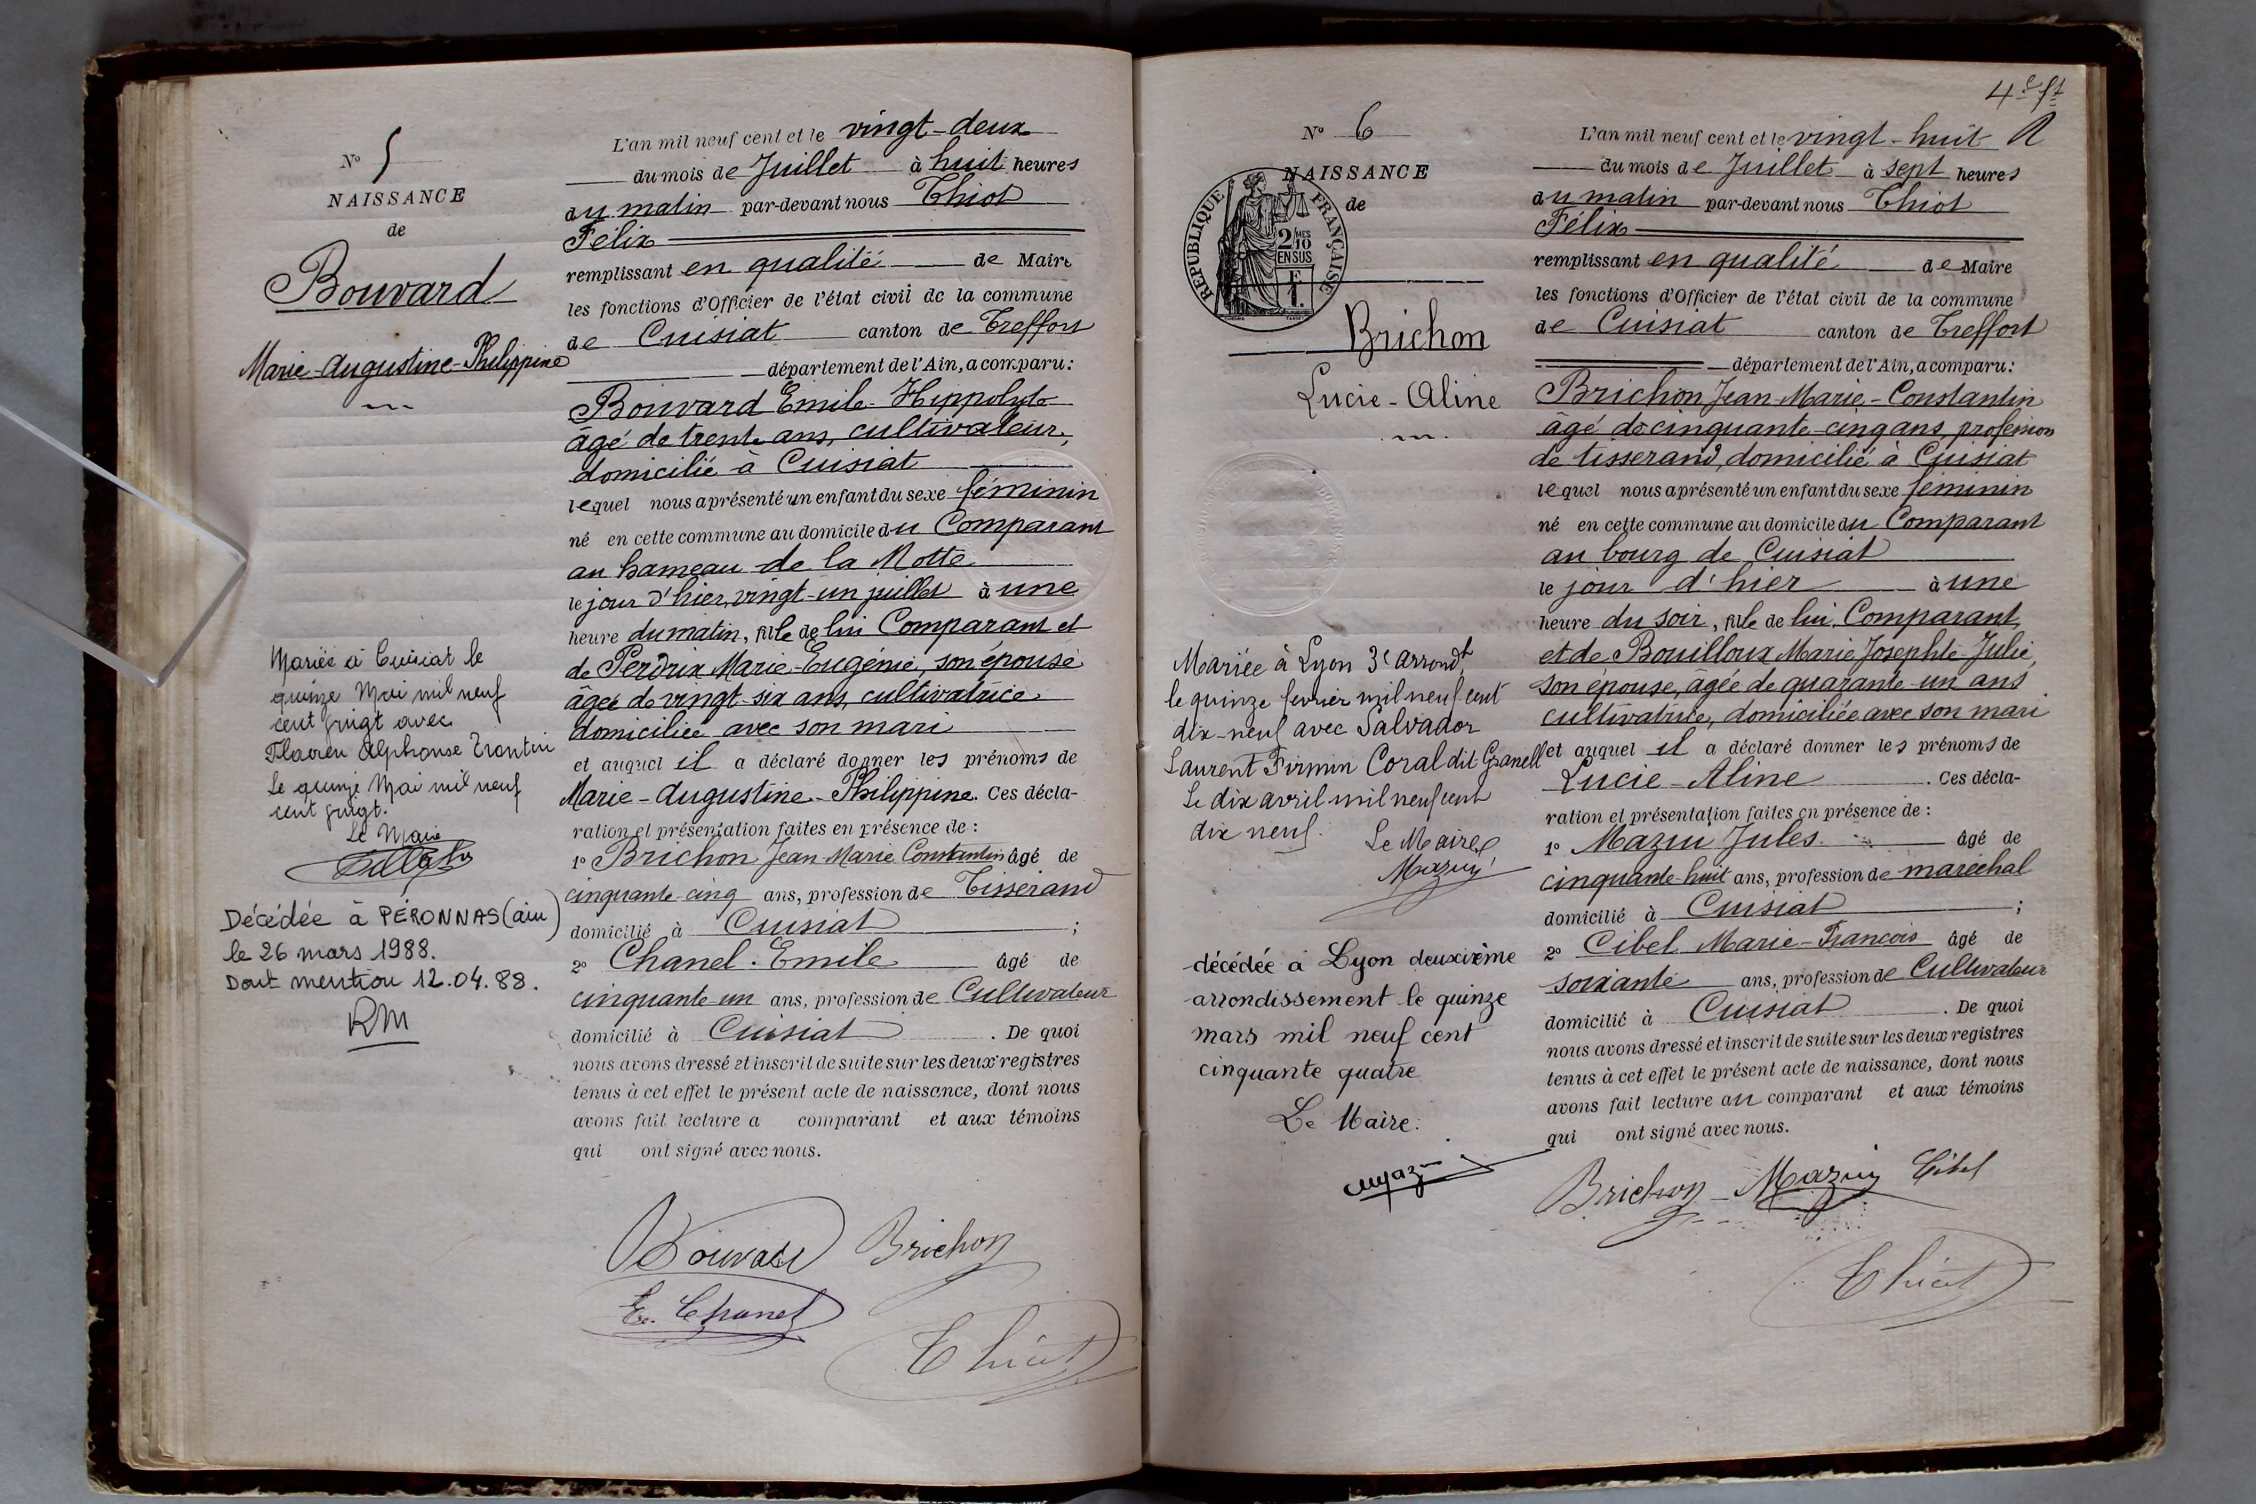 N° 5
NAISSANCE
de
Bouvard
Marie-Augustine-Philippine
Mariée à Cuisiat le
quinze Mai mil neuf
cent vingt avec
Flavien Alphonse Trontin
Le quinze Mai mil neuf
cent vingt.
Le Maire
Décédée à PÉRONNAS (ain)
le 26 mars 1988.
Dont mention 12.04.88.
RM
L'an mil neuf cent et le vingt-deux
du mois de Juillet à huit heures
du matin par-devant nous Thiot
Félix
remplissant en qualité de Maire
les fonctions d'Officier de l'état civil de la commune
de Cuisiat canton de Treffort
département de l'Ain, a comparu:
Bouvard Emile-Hippolyte
âgé de trente ans, cultivateur,
domicilié à Cuisiat
lequel nous a présenté un enfant du sexe féminin
né en cette commune au domicile du Comparant
au hameau de la Motte
le jour d'hier, vingt-un juillet à une
heure du matin, fille de lui Comparant et
de Perdrix Marie-Eugénie, son épouse
âgée de vingt-six ans, cultivatrice
domiciliée avec son mari
et auquel il a déclaré donner les prénoms de
Marie-Augustine-Philippine. Ces décla-
ration et présentation faites en présence de :
1° Brichon Jean-Marie Constantin âgé de
cinquante-cinq ans, profession de Tisserand
domicilié à Cuisiat ;
2° Chanel Emile âgé de
cinquante-un ans, profession de Cultivateur
domicilié à Cuisiat . De quoi
nous avons dressé et inscrit de suite sur les deux registres
tenus à cet effet le présent acte de naissance, dont nous
avons fait lecture a comparant et aux témoins
qui ont signé avec nous.
Bouvard Brichon
E. Chanel
Thiot
4e ft
N° 6
NAISSANCE
de
REPUBLIQUE FRANÇAISE
2 MES 10
EN SUS
F
1
Brichon
Lucie-Aline
Mariée à Lyon 3e arrondt
le quinze fevrier mil neuf cent
dix-neuf avec Salvador
Laurent Firmin Coral dit Granell
Le dix avril mil neuf cent
dix neuf.
Le Maire
Mazuy
décédée à Lyon deuxième
arrondissement le quinze
mars mil neuf cent
cinquante quatre
Le Maire:
L'an mil neuf cent et le vingt-huit
du mois de Juillet à sept heures
du matin par-devant nous Thiot
Félix
remplissant en qualité de Maire
les fonctions d'Officier de l'état civil de la commune
de Cuisiat canton de Treffort
département de l'Ain, a comparu:
Brichon Jean-Marie-Constantin
âgé de cinquante-cinq ans, profession
de tisserand, domicilié à Cuisiat
lequel nous a présenté un enfant du sexe féminin
né en cette commune au domicile du Comparant
au bourg de Cuisiat
le jour d'hier à une
heure du soir, fille de lui Comparant,
et de Bouilloux Marie Josephte-Julie,
son épouse, âgée de quarante-un ans
cultivatrice, domiciliée avec son mari
et auquel il a déclaré donner les prénoms de
Lucie-Aline . Ces décla-
ration et présentation faites en présence de :
1° Mazuy Jules âgé de
cinquante-huit ans, profession de maréchal
domicilié à Cuisiat ;
2° Cibel Marie-François âgé de
soixante ans, profession de Cultivateur
domicilié à Cuisiat . De quoi
nous avons dressé et inscrit de suite sur les deux registres
tenus à cet effet le présent acte de naissance, dont nous
avons fait lecture au comparant et aux témoins
qui ont signé avec nous.
Brichon Mazuy Cibel
Thiot